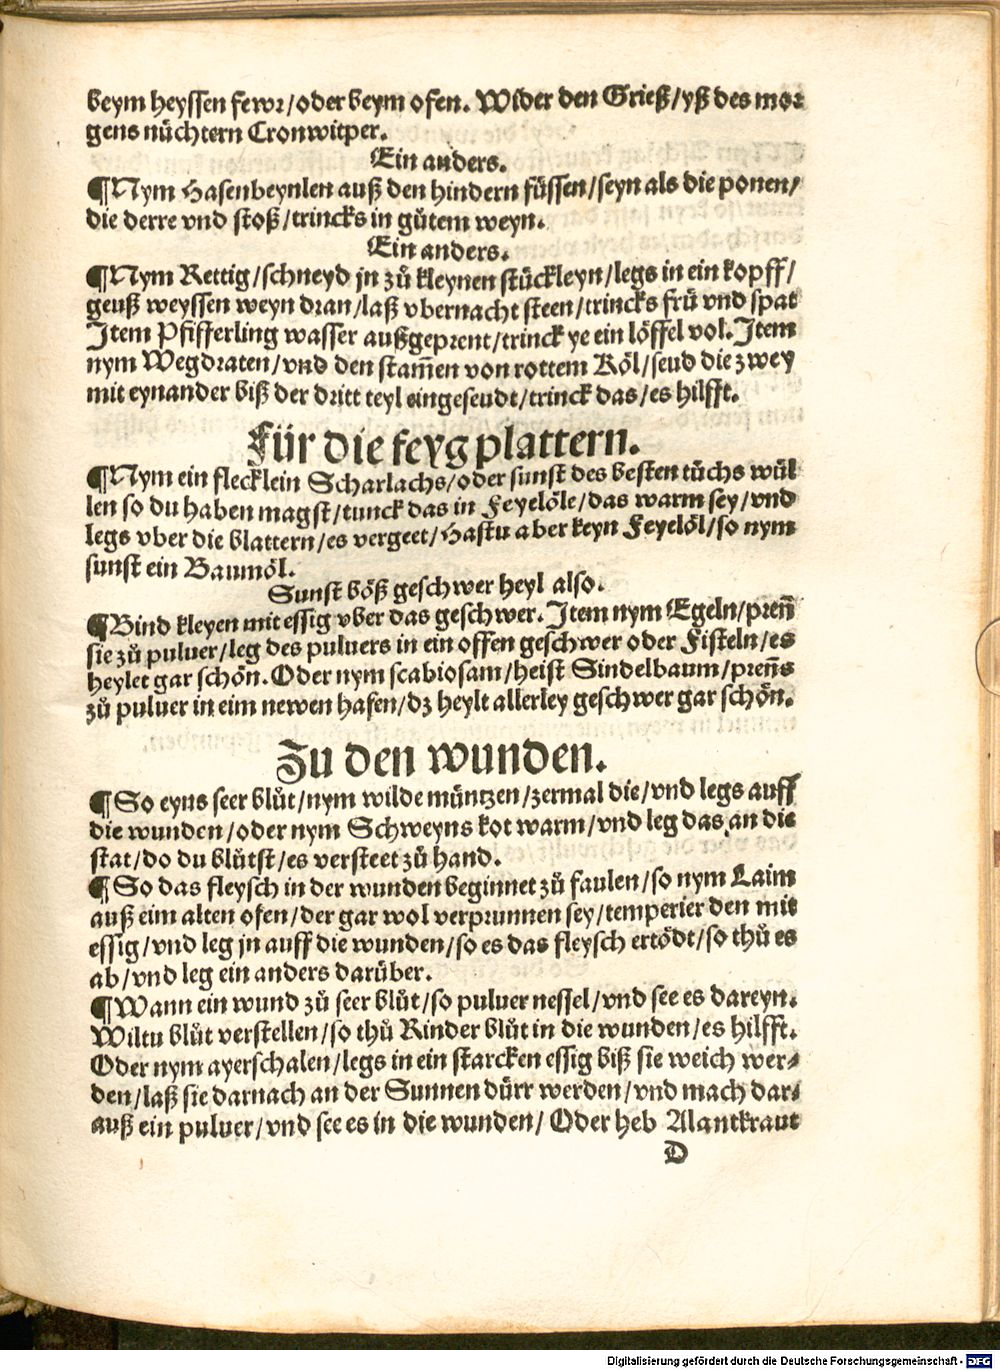 beym heyssen fewr/oder beym ofen. Wider den Grieß/yß des mor
gens nüchtern Cronwitper.
Ein anders.
¶Nym Hasenbeynlen auß den hindern füssen/seyn als die ponen/
die derre vnd stoß/trincks in gůtem weyn.
Ein anders.
¶Nym Rettig/schneyd jn zů kleynen stückleyn/legs in ein kopff/
geuß weyssen weyn dran/laß vbernacht steen/trincks frü vnd spat
Item Pfifferling wasser außgeprent/trinck ye ein löffel vol. Item
nym Wegdraten/vnd den stam̄en von rottem Köl/seud die zwey
mit eynander biß der dritt teyl eingeseudt/trinck das/es hilfft.
Für die feygplattern.
¶Nym ein flecklein Scharlachs/oder sunst des besten tůchs wül
len so du haben magst/tunck das in Feyelöle/das warm sey/vnd
legs vber die blattern/es vergeet/Hastu aber keyn Feyelöl/so nym
sunst ein Baumöl.
Sunst böß geschwer heyl also.
¶Bind kleyen mit essig vber das geschwer. Item nym Egeln/pren̄
sie zů puluer/leg des puluers in ein offen geschwer oder Fisteln/es
heylet gar schön. Oder nym scabiosam/heist Sindelbaum/pren̄s
zů puluer in eim newen hafen/dz heylt allerley geschwer gar schön.
Zu den wunden.
¶So eyns seer blůt/nym wilde müntzen/zermal die/vnd legs auff
die wunden/oder nym Schweyns kot warm/vnd leg das an die
stat/do du blůtst/es versteet zů hand.
¶So das fleysch in der wunden beginnet zů faulen/so nym Laim
auß eim alten ofen/der gar wol verprunnen sey/temperier den mit
essig/vnd leg jn auff die wunden/so es das fleysch ertödt/so thů es
ab/vnd leg ein anders darüber.
¶Wann ein wund zů seer blůt/so puluer nessel/vnd see es dareyn.
Wiltu blůt verstellen/so thů Rinder blůt in die wunden/es hilfft.
Oder nym ayerschalen/legs in ein starcken essig biß sie weich wer⸗
den/laß sie darnach an der Sunnen dürr werden/vnd mach dar⸗
auß ein puluer/vnd see es in die wunden/ Oder heb Alantkraut
D
Digitalisierung gefördert durch die Deutsche Forschungsgemeinschaft - DFG